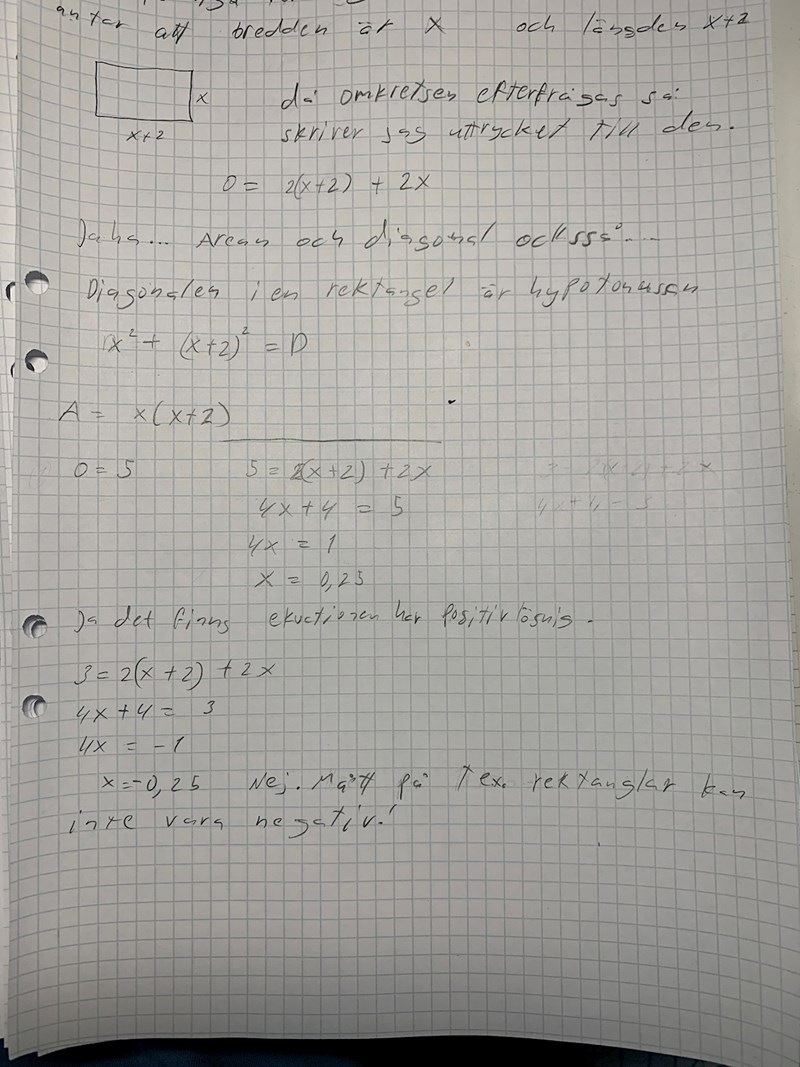 antar att bredden är x och längden x+2
x
x+2
då omkretsen efterfrågas så
skriver jag uttrycket till den.
O = 2(x+2) + 2x
Jaha... Arean och diagonal ocksså....
Diagonalen i en rektangel är hypotonusen
x² + (x+2)² = D
A = x(x+2)
O = 5
5 = 2(x+2) + 2x
4x + 4 = 5
4x = 1
x = 0,25
Ja det finns ekvationen har positiv lösnig.
3 = 2(x+2) + 2x
4x + 4 = 3
4x = -1
x = -0,25 Nej. Mått på tex. rektanglar kan
inte vara negativ!